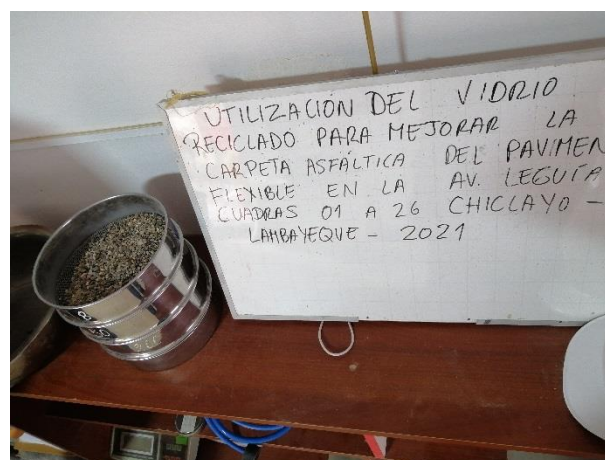 UTILIZACIÓN DEL VIDRIO
RECICLADO PARA MEJORAR LA
CARPETA ASFÁLTICA DEL PAVIMEN
FLEXIBLE EN LA AV. LEGUÍA
CUADRAS 01 A 26 CHICLAYO -
LAMBAYEQUE - 2021